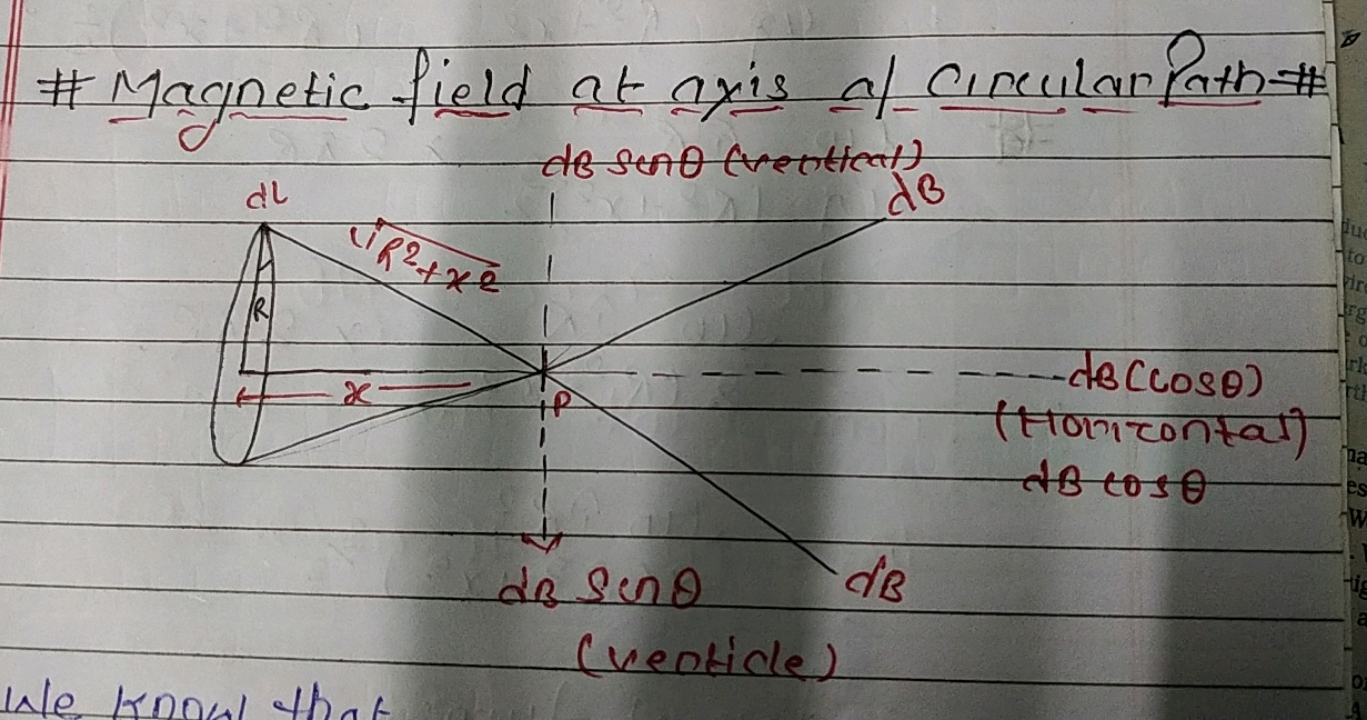 # Magnetic field at axis of Circular Path #
dB sinθ (vertical)
dL
dB
√R²+x²
R
x
P
dB(cosθ)
(Horizontal)
dB cosθ
dB sinθ
dB
(verticle)
We know that